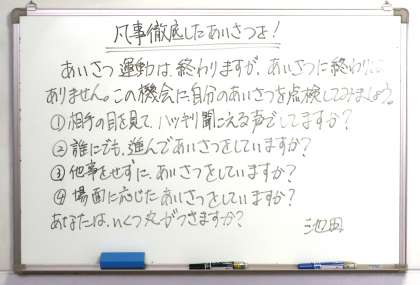 凡事徹底したあいさつを!
あいさつ運動は、終わりますが、あいさつに終わりは
ありません。この機会に自分のあいさつを点検してみましょう。
①相手の目を見て、ハッキリ聞こえる声でしてますか?
②誰にでも、進んであいさつをしていますか?
③他事をせずに、あいさつをしていますか?
④場面に応じたあいさつをしていますか?
あなたは、いくつ丸がつきますか?
池田